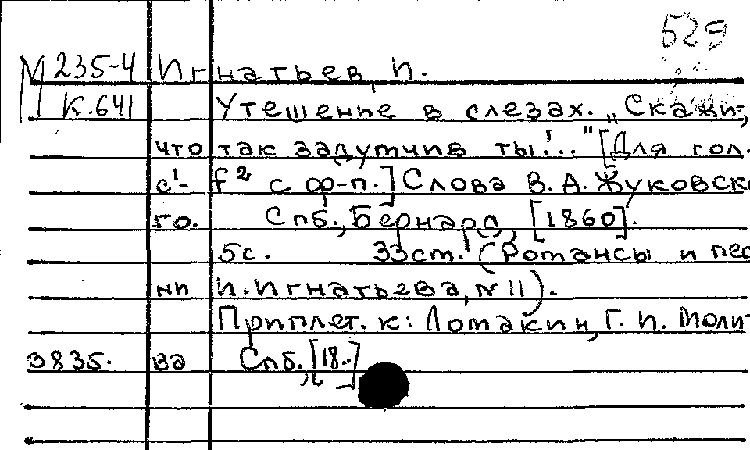 529
М 235-4 Игнатьев, И.
К.641 Утешенье в слезах. „Скажи,
что так задумчив ты!..." [Для гол.
c¹- f² с ф-п.] Слова В.А. Жуковско
го. Спб., Бернард, [1860].
5с. 33см. (Романсы и пес
ни И. Игнатьева, №11).
Приплет. к: Ломакин, Г. И. Моли-
3835. ва Спб., [18..]